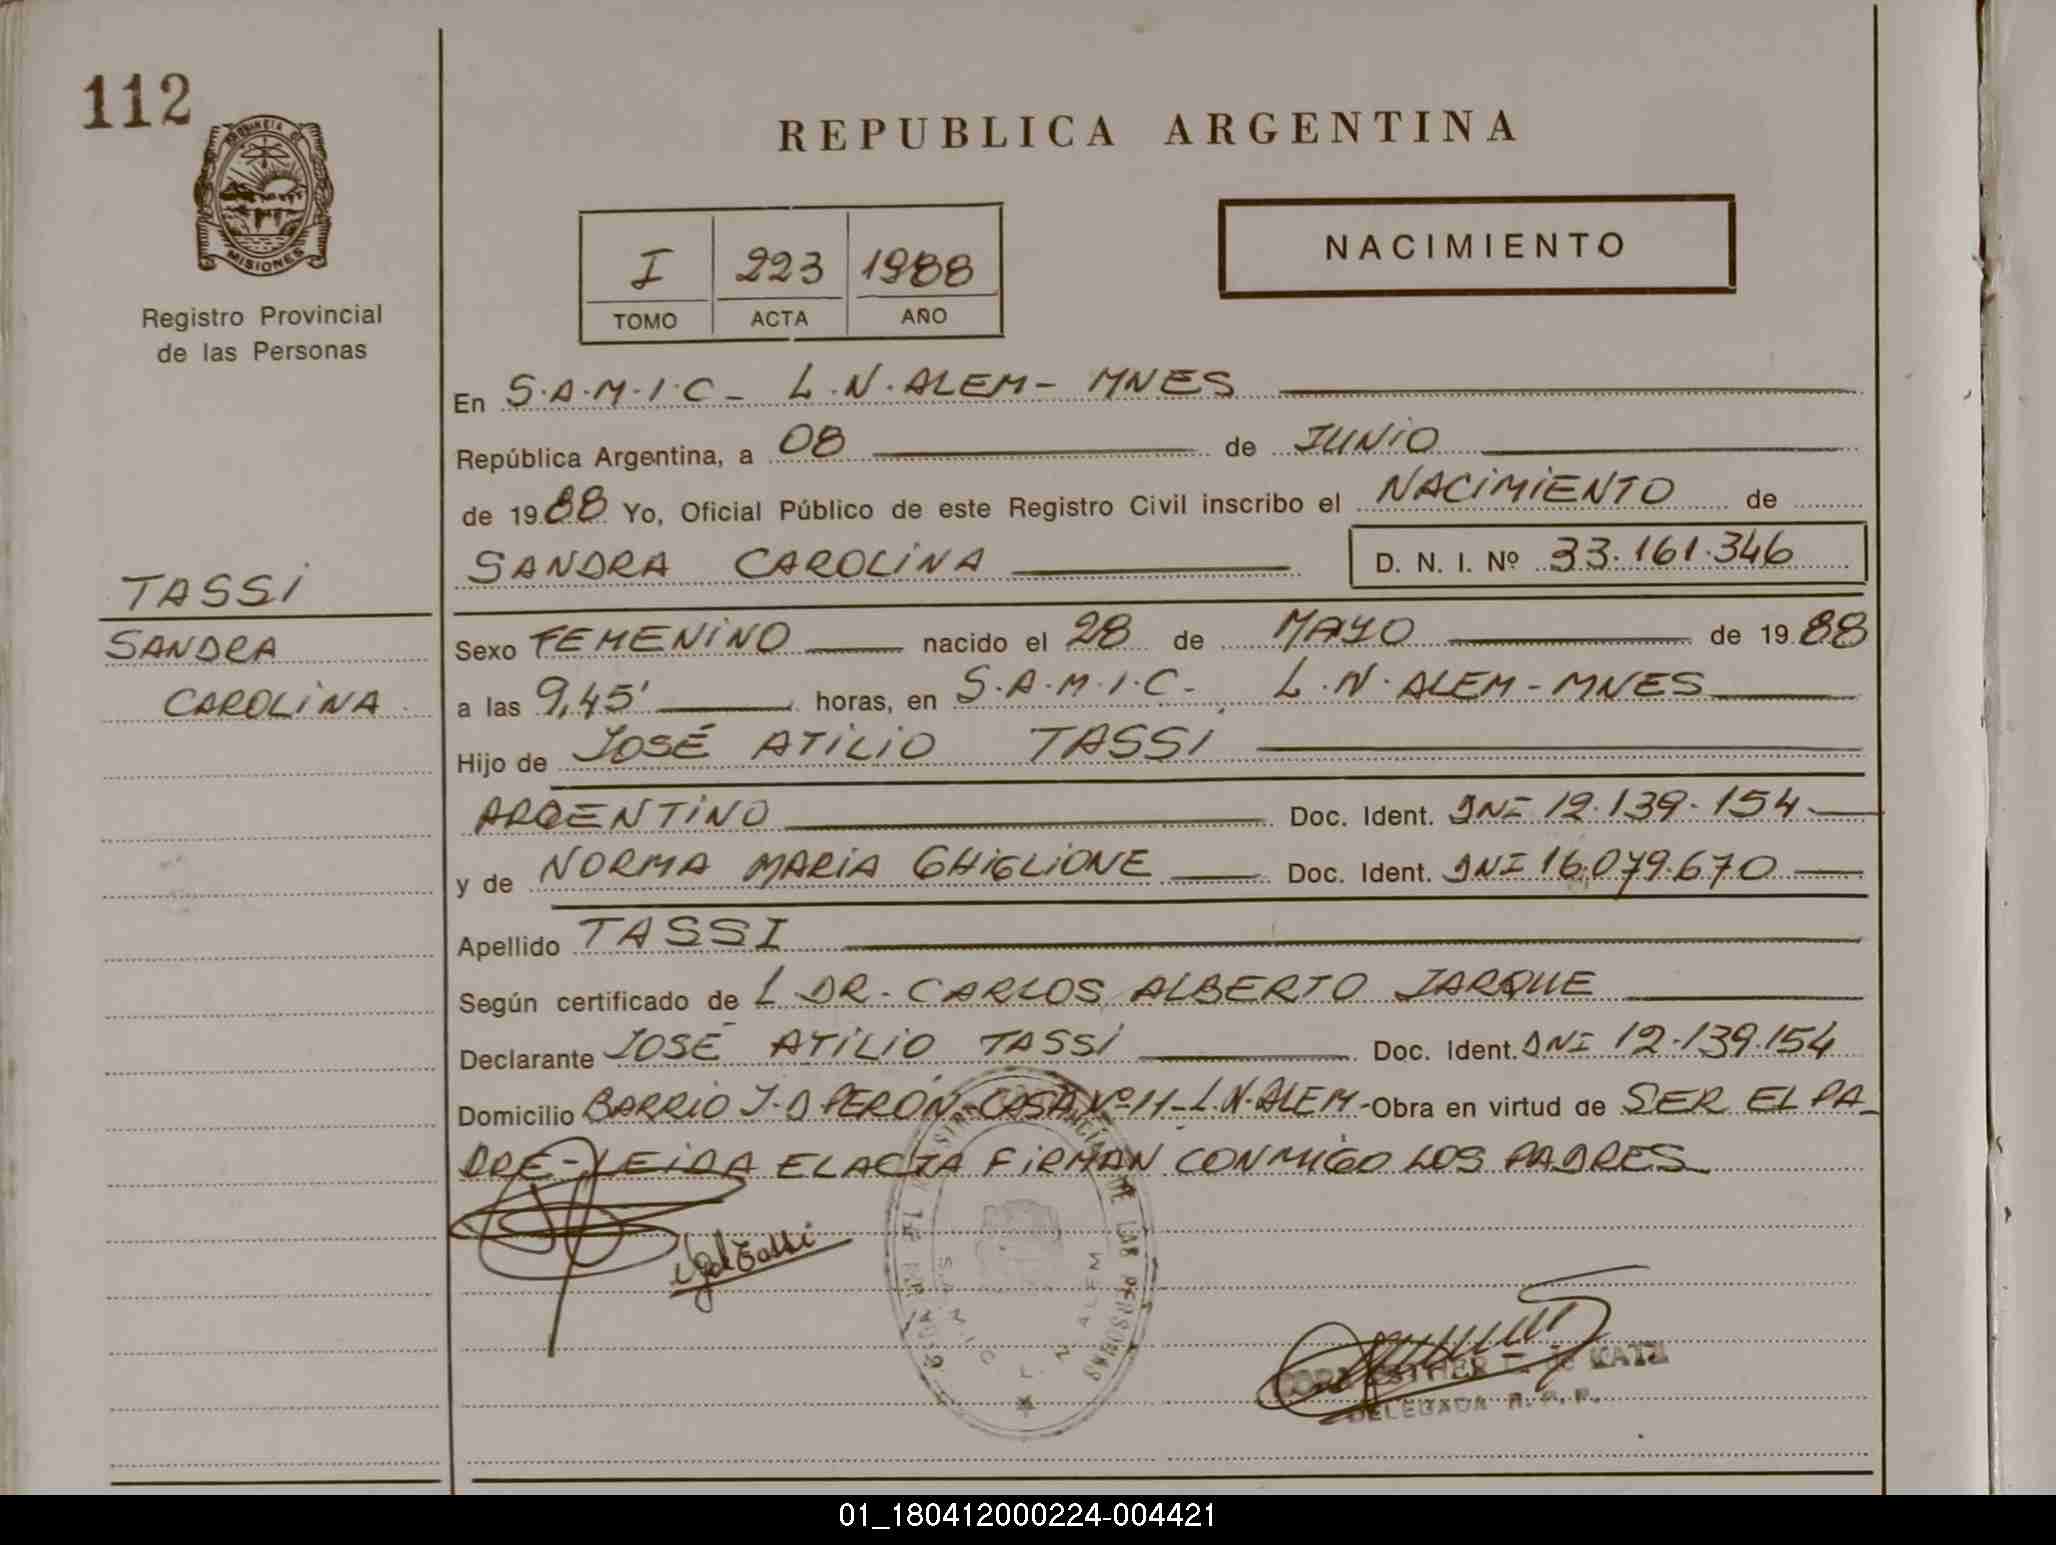 112
PROVINCIA DE
MISIONES
Registro Provincial
de las Personas
REPUBLICA ARGENTINA
I 223 1988
TOMO ACTA AÑO
NACIMIENTO
En S.A.M.I.C - L.N.ALEM - MNES
República Argentina, a 08 de JUNIO
de 1988 Yo, Oficial Público de este Registro Civil inscribo el NACIMIENTO de
SANDRA CAROLINA D. N. I. Nº 33.161.346
TASSI
SANDRA
CAROLINA
Sexo FEMENINO nacido el 28 de MAYO de 1988
a las 9,45' horas, en S.A.M.I.C - L.N.ALEM - MNES
Hijo de JOSÉ ATILIO TASSI
ARGENTINO Doc. Ident. DNI 12.139.154
y de NORMA MARIA GHIGLIONE Doc. Ident. DNI 16.079.670
Apellido TASSI
Según certificado de L DR. CARLOS ALBERTO JARQUE
Declarante JOSÉ ATILIO TASSI Doc. Ident. DNI 12.139.154
Domicilio BARRIO J.D PERÓN - CASA Nº 11 - L.N.ALEM - Obra en virtud de SER EL PA-
DRE - LEIDA EL ACTA FIRMAN CONMIGO LOS PADRES
Tassi
DE LAS PERSONAS
L. N. ALEM
ESTHER KATZ
DELEGADA R.P.P.
01_180412000224-004421